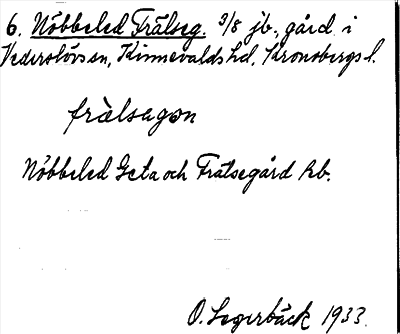 6. Nöbbeled Frälseg. 3/8 jb., gård i
Vederslövs sn, Kinnevalds hd. Kronobergs l.
frälsagọn
Nöbbeled Geta och Frälsegård hb.
O. Segerbäck 1933.